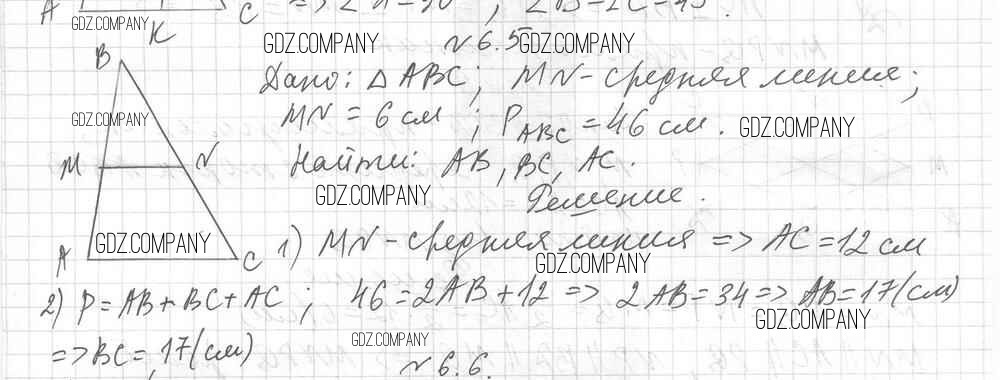 A C => ∠A=90°, ∠B=∠C=45°.
K
GDZ.COMPANY
GDZ.COMPANY №6.5 GDZ.COMPANY
B
Дано: △ABC; MN-средняя линия;
GDZ.COMPANY
MN = 6 см ; P_ABC = 46 см. GDZ.COMPANY
M N
Найти: AB, BC, AC.
GDZ.COMPANY
Решение.
GDZ.COMPANY
A C
1) MN-средняя линия => AC = 12 см
GDZ.COMPANY
2) P = AB + BC + AC ; 46 = 2AB + 12 => 2AB = 34 => AB = 17(см)
GDZ.COMPANY
=> BC = 17(см)
GDZ.COMPANY
№6.6.